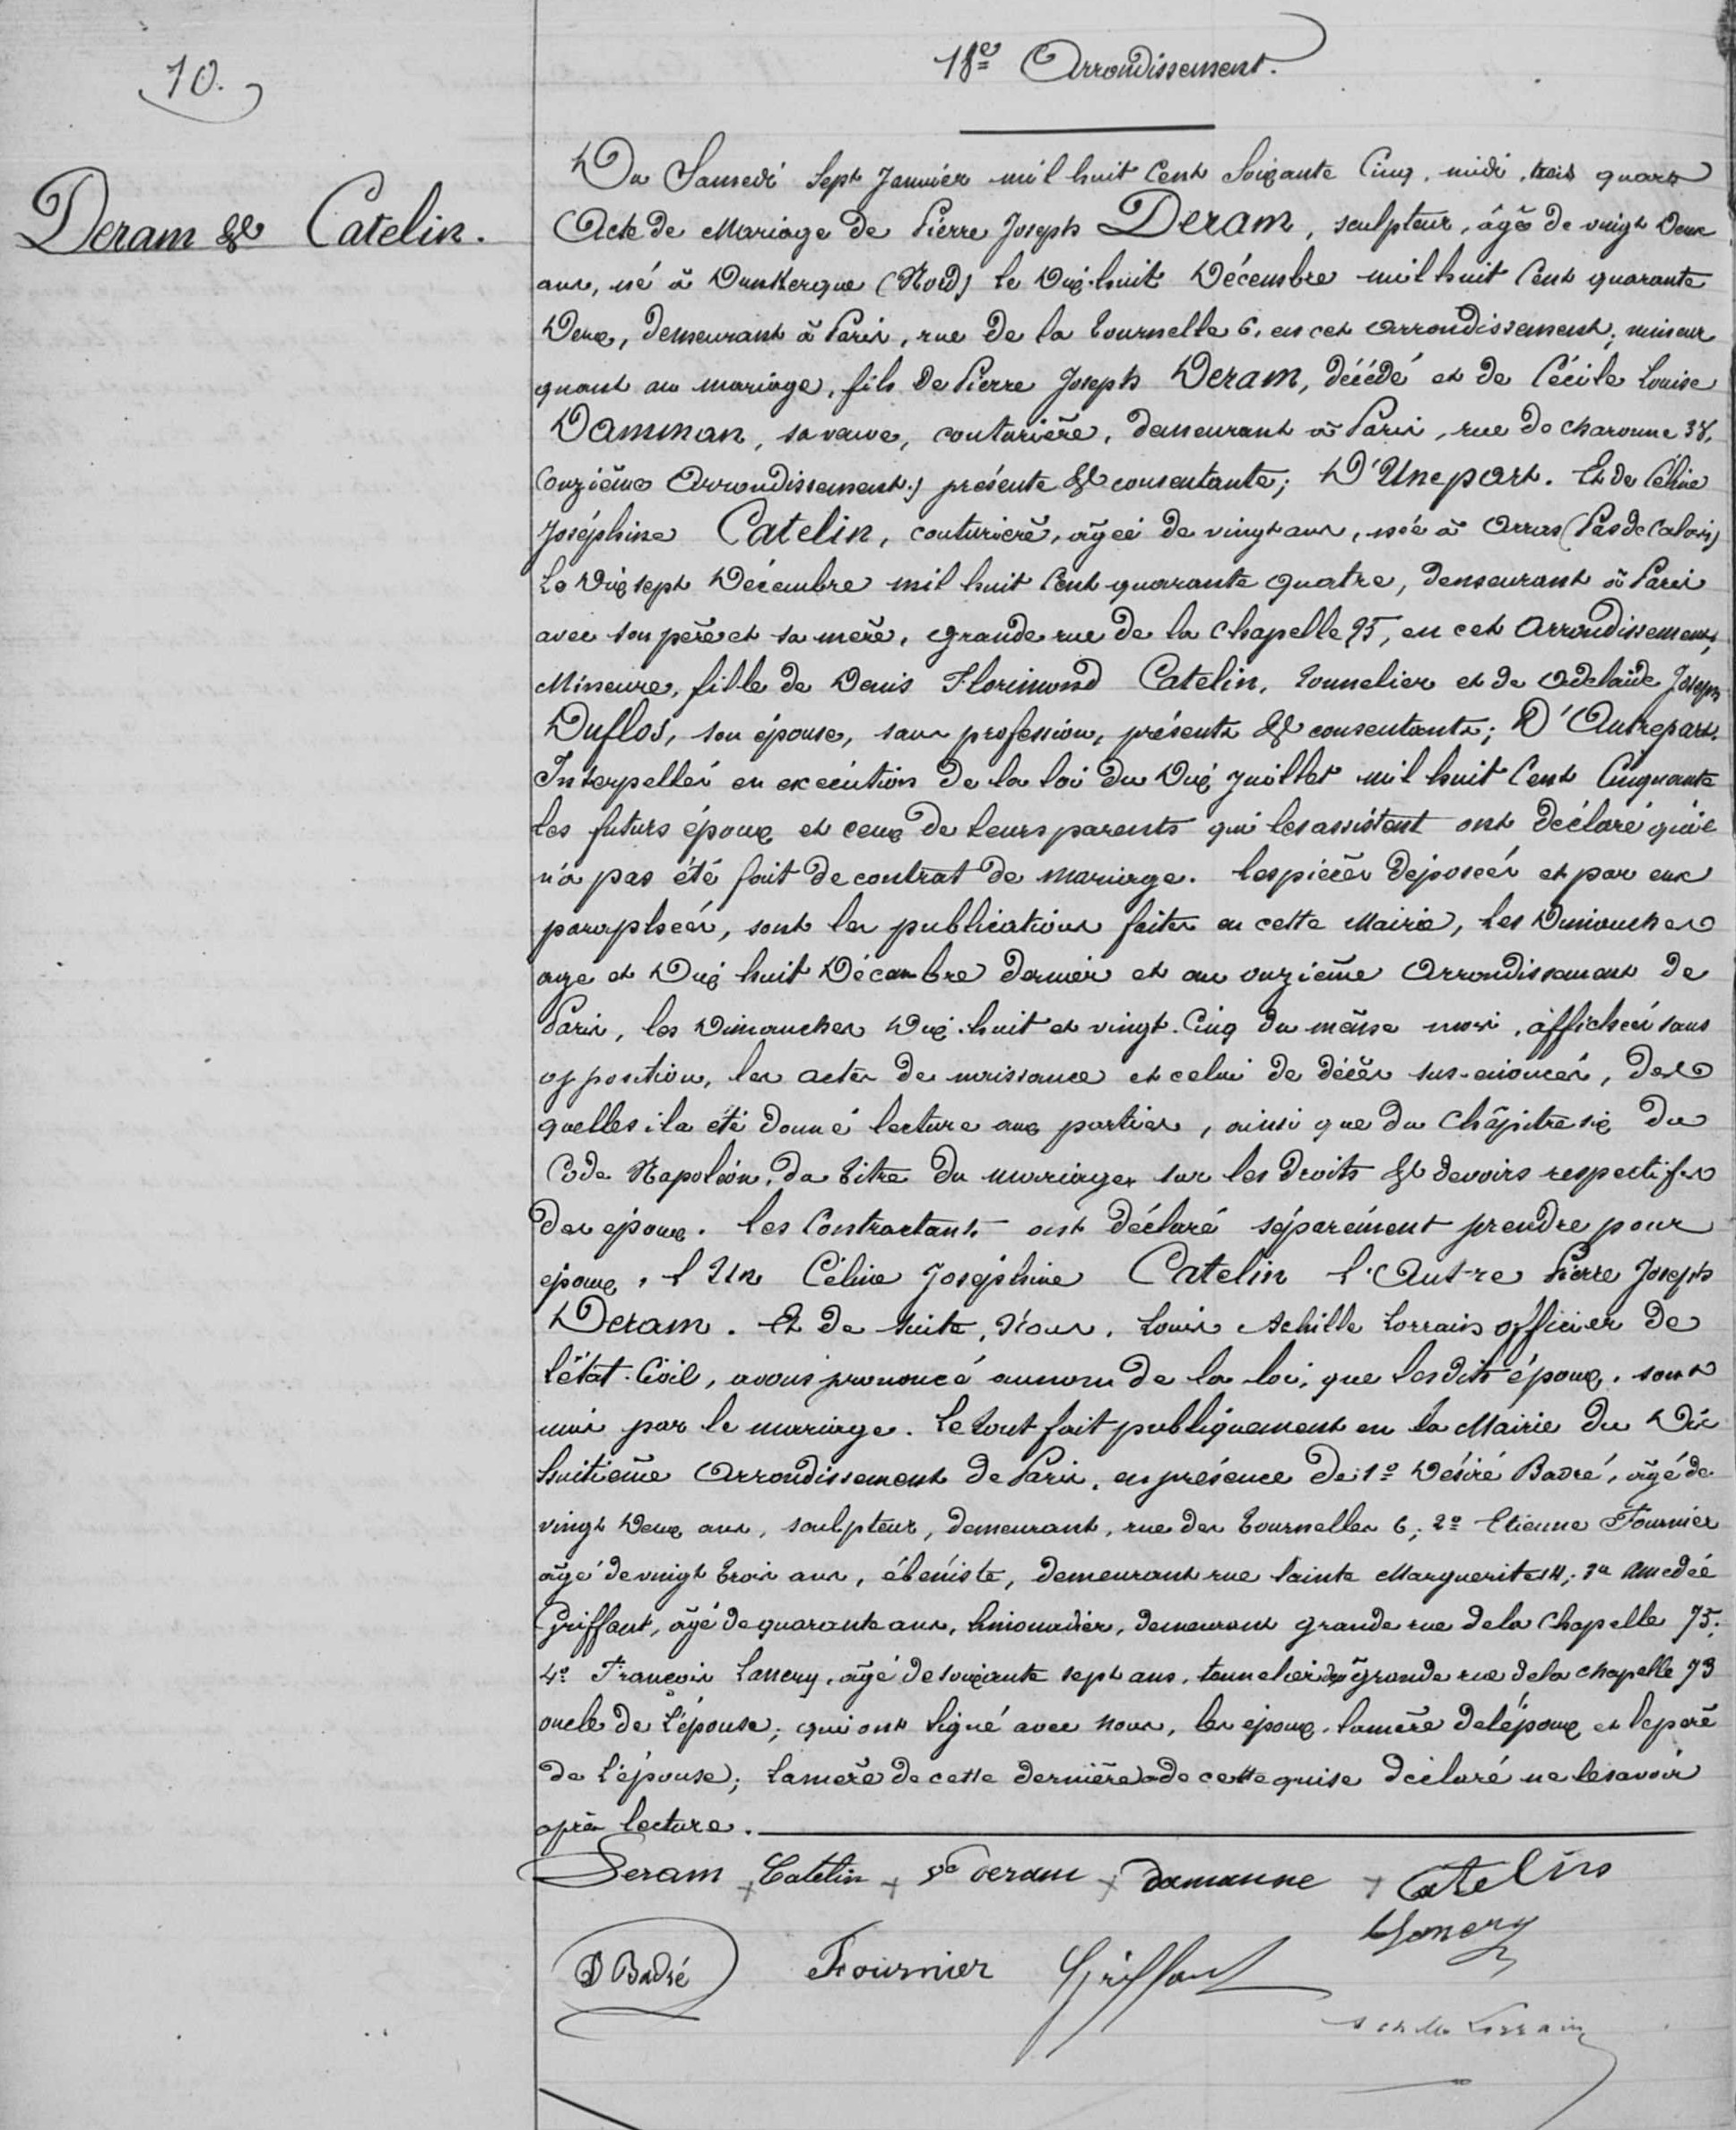 18e Arrondissement.
10.
Deram & Catelin.
Du Samedi Sept Janvier mil huit Cent Soixante Cinq, midi, trois quarts
Acte de Mariage de Pierre Joseph Deram, sculpteur, âgé de vingt Deux
ans, né à Dunkerque (Nord) le Dix-huit Décembre mil huit Cent quarante
Deux, demeurant à Paris, rue de la Tournelle 6, en cet arrondissement; mineur
quant au mariage, fils de Pierre Joseph Deram, décédé et de Cécile Louise
Damman, sa veuve, couturière, demeurant à Paris, rue de charonne 38,
(onzième Arrondissement) présente & consentante; D'Une part. Et de Céline
Joséphine Catelin, couturière, âgée de vingt ans, née à Arras (Pas de Calais)
Le Dix sept Décembre mil huit Cent quarante quatre, demeurant à Paris
avec son père et sa mère, grande rue de la Chapelle 95, en cet Arrondissement,
Mineure, fille de Denis Florimond Catelin, tonnelier et de Adelaïde Joseph
Duflos, son épouse, sans profession, présents & consentants; D'Autre part.
Interpellés en exécution de la loi du Dix juillet mil huit Cent Cinquante
les futurs époux et ceux de leurs parents qui les assistent ont déclaré qu'il
n'a pas été fait de contrat de mariage. les pièces déposées et par eux
paraphées, sont les publications faites en cette Mairie, les Dimanches
onze et Dix huit Décembre dernier et au onzième Arrondissement de
Paris, les Dimanches Dix-huit et vingt-Cinq du même mois, affichées sans
opposition, les actes de naissance et celui de décès sus-énoncés, des
quelles il a été donné lecture aux parties, ainsi que du Chapitre six du
Code Napoléon, du titre du mariage, sur les Droits & devoirs respectifs
des époux. les Contractants ont déclaré séparément prendre pour
époux, l'Un Céline Joséphine Catelin l'Autre Pierre Joseph
Deram. Et de suite, Nous, Louis Achille Lorrain officier de
l'état-Civil, avons prononcé au nom de la loi, que lesdits époux, sont
unis par le mariage. Le tout fait publiquement en la Mairie du Dix
huitième Arrondissement de Paris, en présence de: 1º Désiré Badré, âgé de
vingt Deux ans, sculpteur, demeurant, rue des Tournelles 6; 2º Etienne Fournier
âgé de vingt trois ans, ébéniste, demeurant rue Sainte Marguerite 14; 3º Amedée
Griffaut, âgé de quarante ans, limonadier, demeurant grande rue de la Chapelle 75;
4º François Lancry, âgé de soixante sept ans, tonnelier grande rue de la chapelle 73
oncle de l'épouse; qui ont signé avec nous, les époux, la mère de l'époux et le père
de l'épouse; la mère de cette dernière de ce requise déclaré ne le savoir
après lecture.
Deram Catelin Ve deram damanne Catelin
Lancry
D Badré Fournier Griffaut
Achille Lorrain